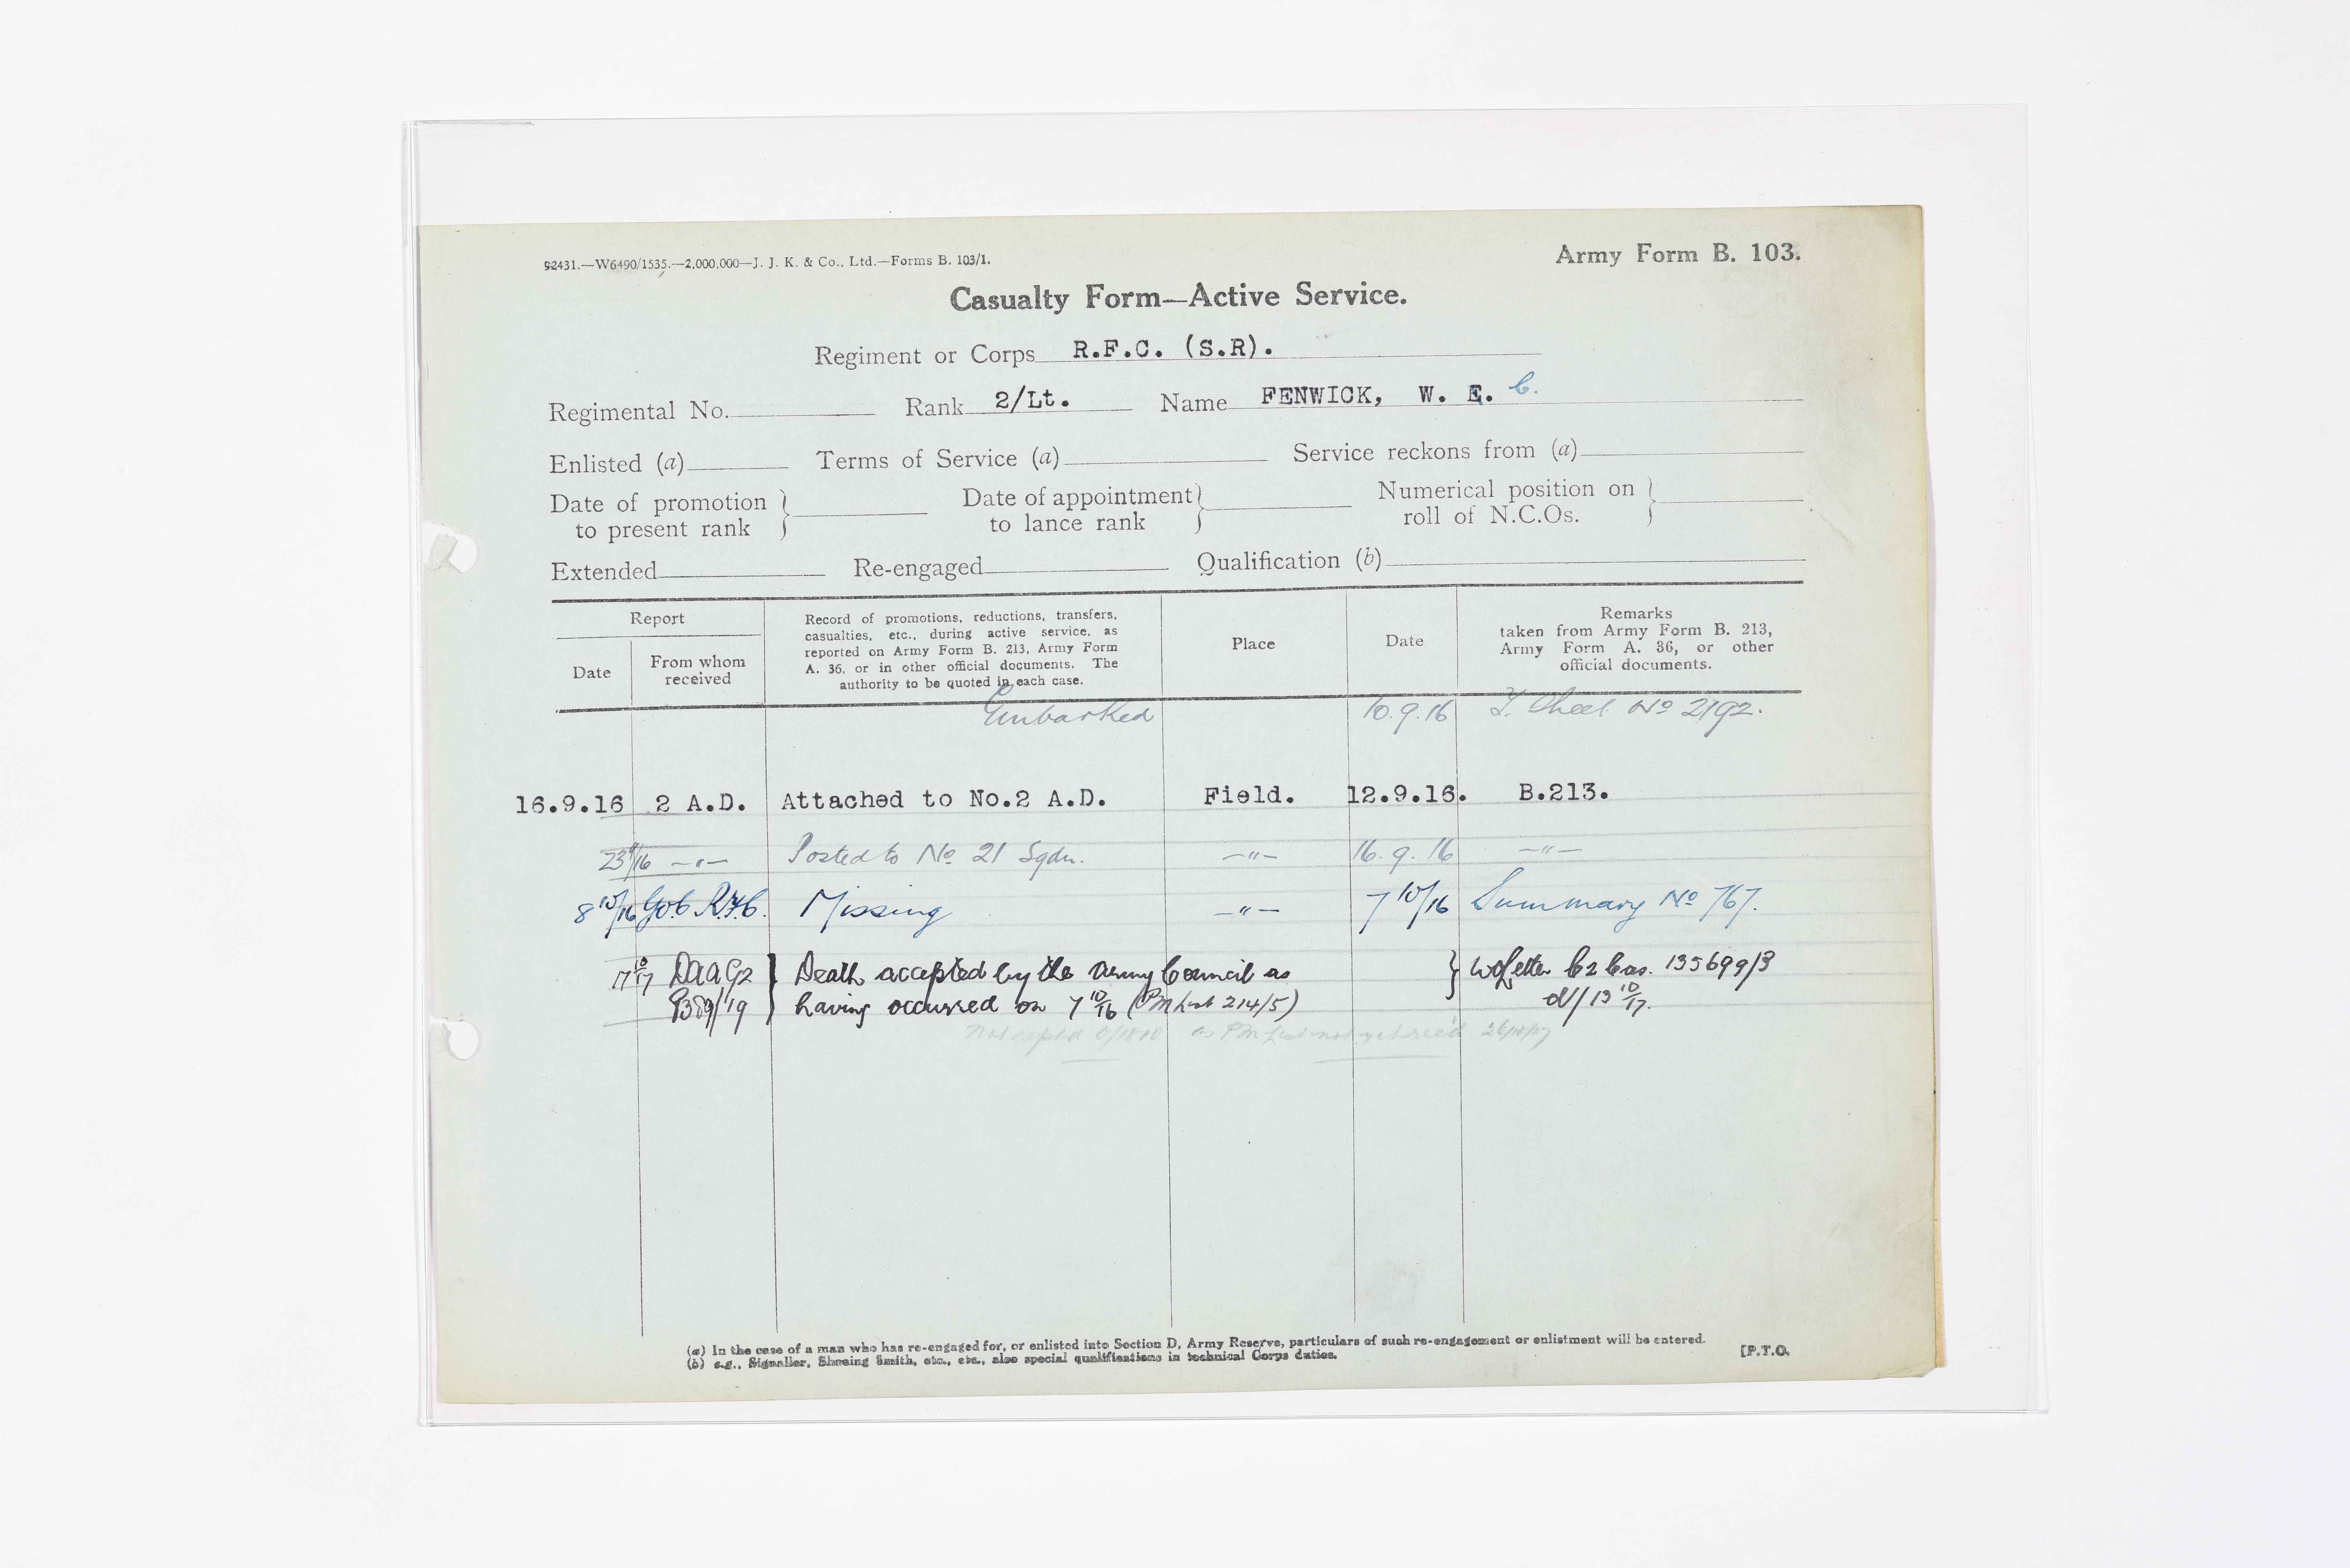 92431.—W6490/1535.—2,000,000—J. J. K. & Co., Ltd.—Forms B. 103/1.
Army Form B. 103.
Casualty Form—Active Service.
Regiment or Corps R.F.C. (S.R).
Regimental No. Rank 2/Lt. Name FENWICK, W. E. C.
Enlisted (a) Terms of Service (a) Service reckons from (a)
Date of promotion to present rank } Date of appointment to lance rank } Numerical position on roll of N.C.Os. }
Extended Re-engaged Qualification (b)
Report
Date
From whom received
Record of promotions, reductions, transfers,
casualties, etc., during active service, as
reported on Army Form B. 213, Army Form
A. 36, or in other official documents. The
authority to be quoted in each case.
Place
Date
Remarks
taken from Army Form B. 213,
Army Form A. 36, or other
official documents.
Embarked 10.9.16 Sheet No 2192.
16.9.16 2 A.D. Attached to No.2 A.D. Field. 12.9.16. B.213.
23/9/16 —"— Posted to No 21 Sqdn. —"— 16.9.16 —"—
8 10/16 GOC R.F.C. Missing —"— 7 10/16 Summary No 767.
17 10/17 DAAG2 } Death accepted by the Army Council as } WO Letter C2 Cas. 135699/3
having occurred on 7 10/16 (PM List 214/5) d/ 13 10/17.
as PM List not yet rec'd 26/10/17
(a) In the case of a man who has re-engaged for, or enlisted into Section D, Army Reserve, particulars of such re-engagement or enlistment will be entered.
(b) e.g., Signaller, Shoeing Smith, etc., etc., also special qualifications in technical Corps duties.
[P.T.O.